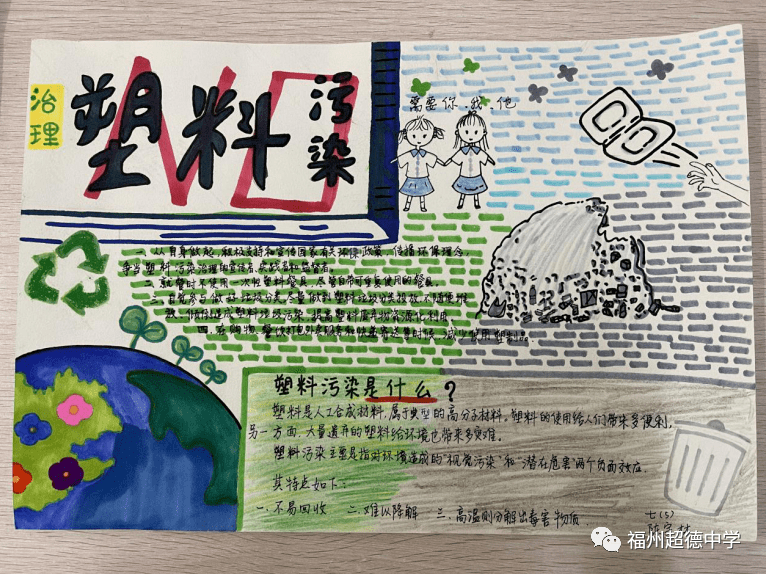 治理
塑料
NO
污染
需要你、我、他
一、从自身做起,积极支持和宣传国家有关环保政策,传播环保理念,
争当塑料污染治理的宣传者、实践者和监督者。
二、就餐时不使用一次性塑料餐具,尽量自带可重复使用的餐具。
三、自觉参与做好垃圾分类,尽量做到塑料垃圾分类投放,不随意堆
放,
塑料污染是什么?
塑料是人工合成材料,属于典型的高分子材料。塑料的使用给人们带来多便利,
另一方面,大量遗弃的塑料给环境也带来多灾难。
塑料污染主要是指对环境造成的"视觉污染"和"潜在危害"两个负面效应.
其特点如下:
一、不易回收 二、难以降解 三、高温则分解出毒害物质
七(5)
福州超德中学